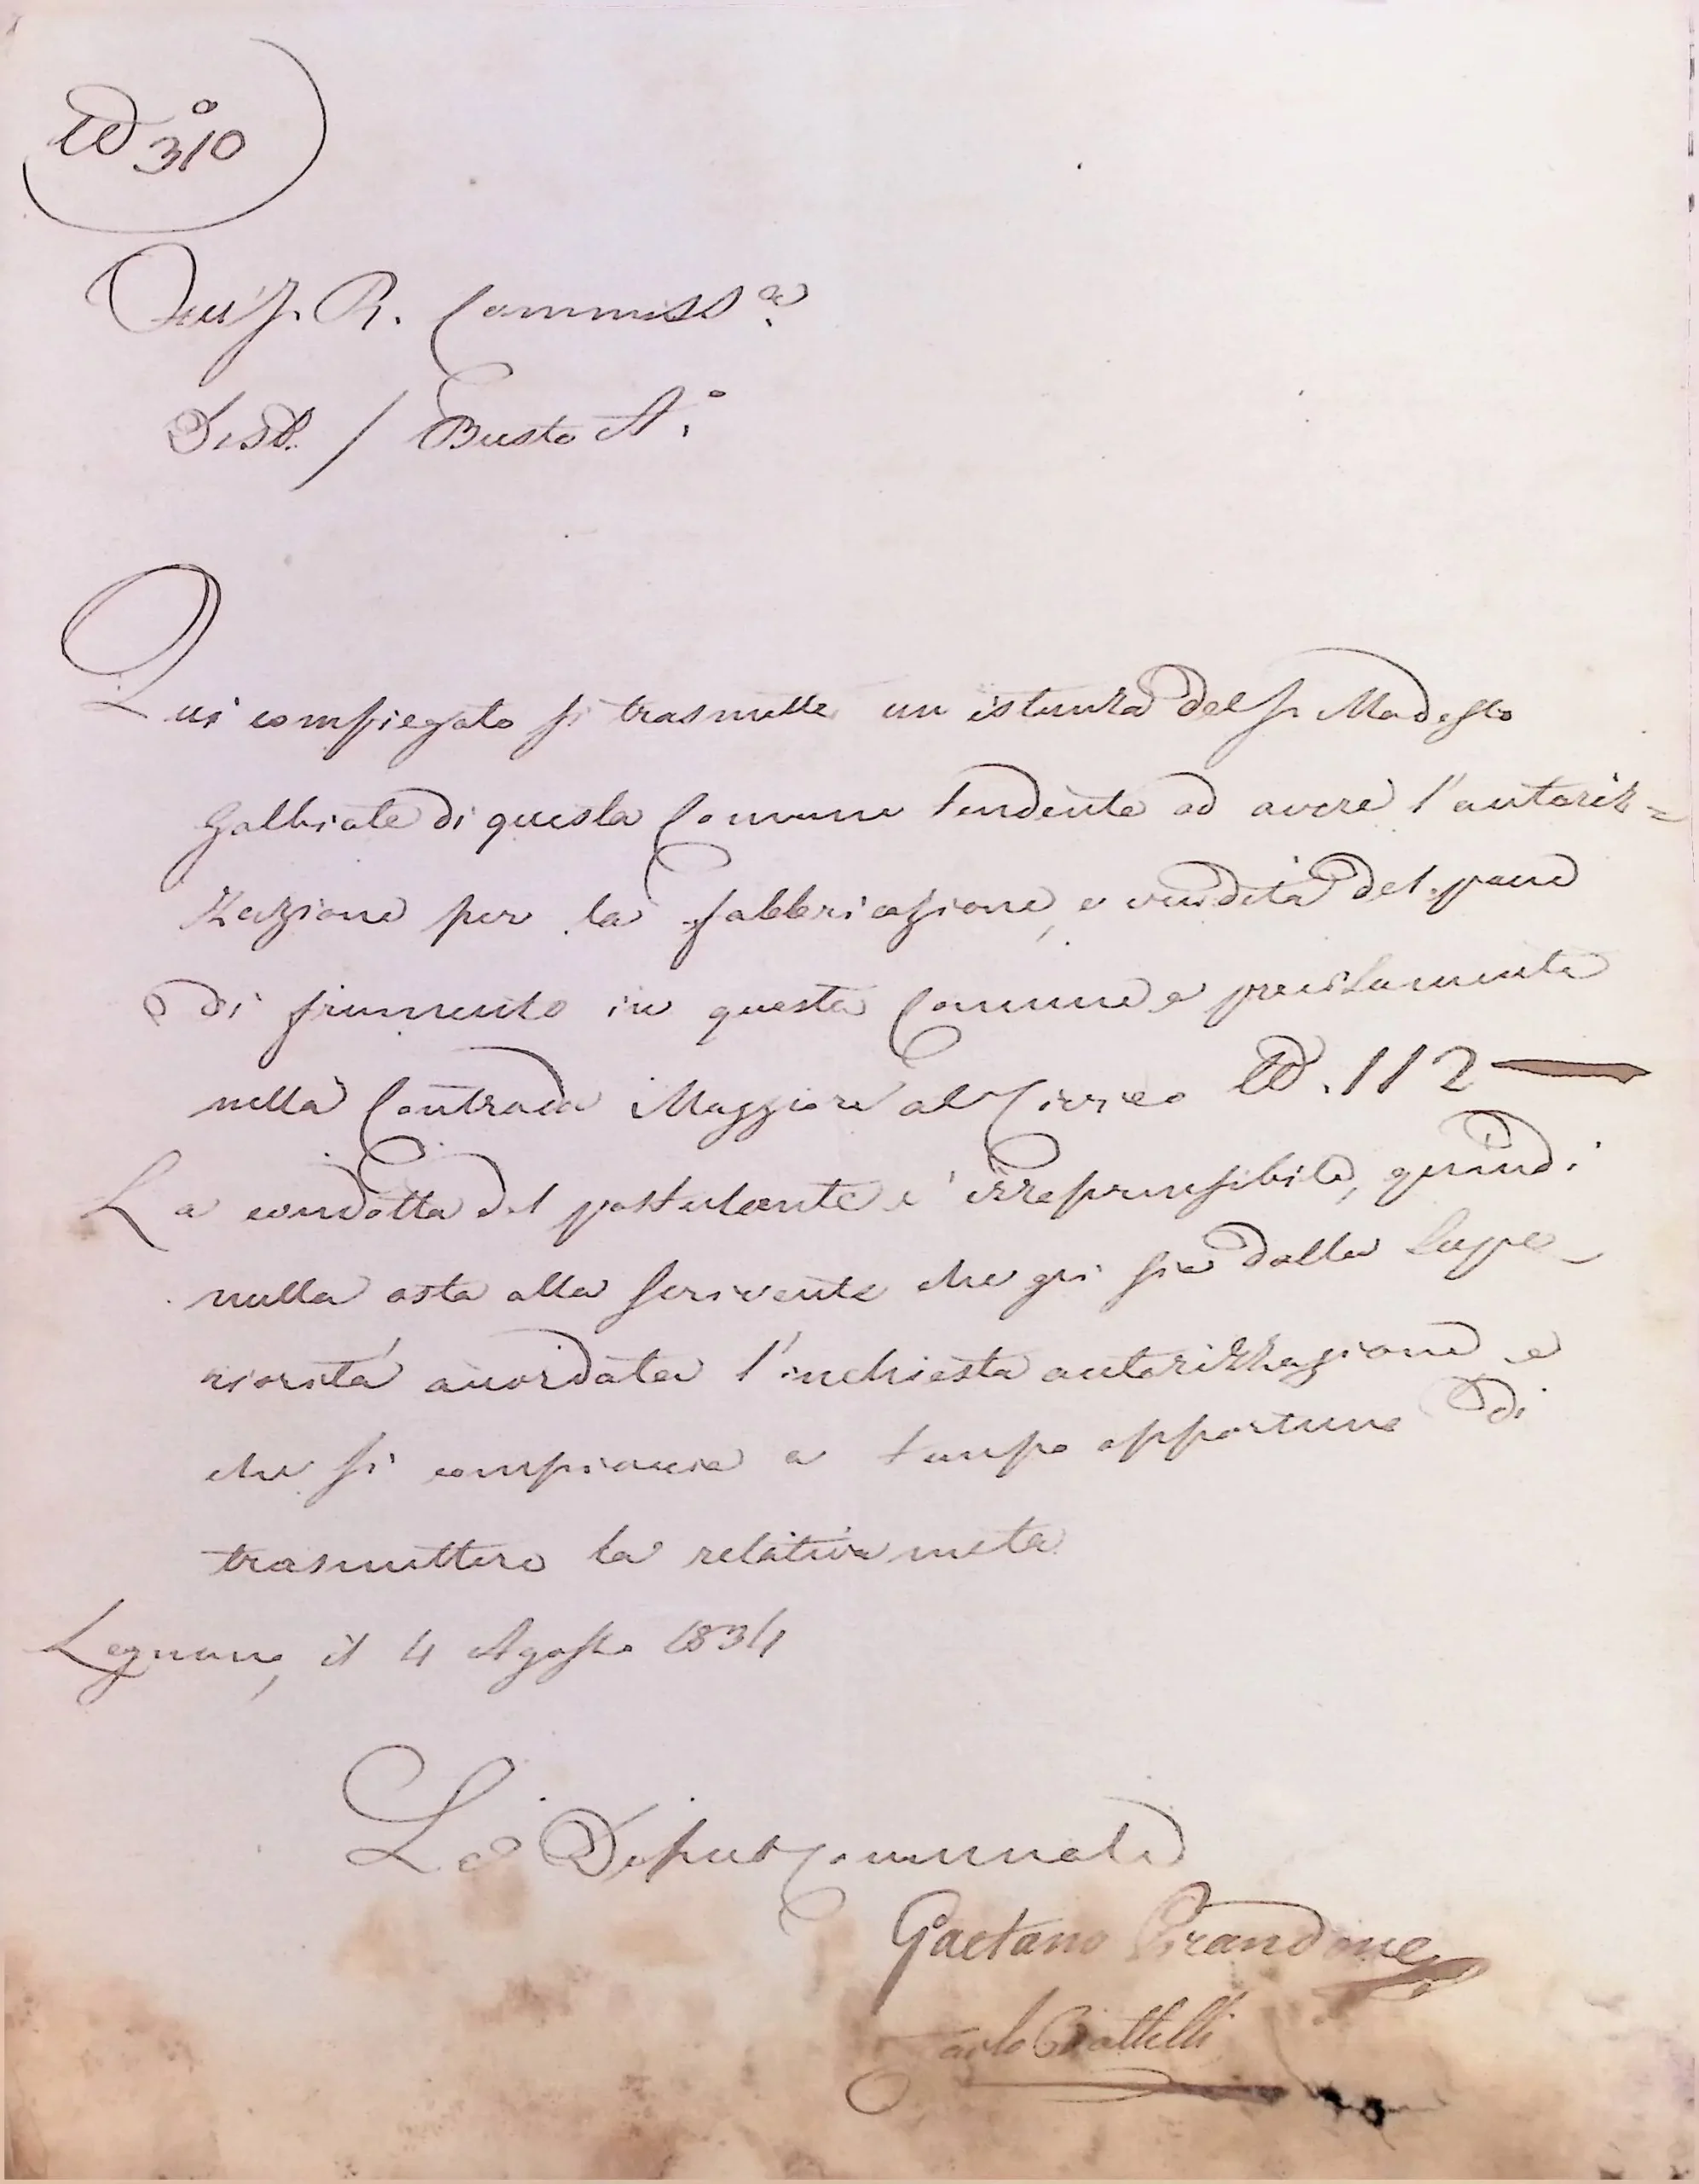 N.° 310
All'I. R. Commiss.e
Dist. / Busto A.°
Qui compiegato si trasmette un istanza del Sr Modesto
Galbiate di questa Comune tendente ad avere l'autoriz=
zazione per la fabbricazione, e vendita del pane
di frumento in questa Comune e precisamente
nella Contrada Maggiore al Civico N. 112
La condotta del postulante è irreprensibile, quindi
nulla osta alla scrivente che gli sia dalla Supe_
riorità accordata l'inchiesta autorizzazione e
che si compiaccia a tempo opportuno di
trasmettere la relativa meta
Legnano, il 4 Agosto 1834
La Deput Comunale
Gaetano Prandone
Carlo Crattelli